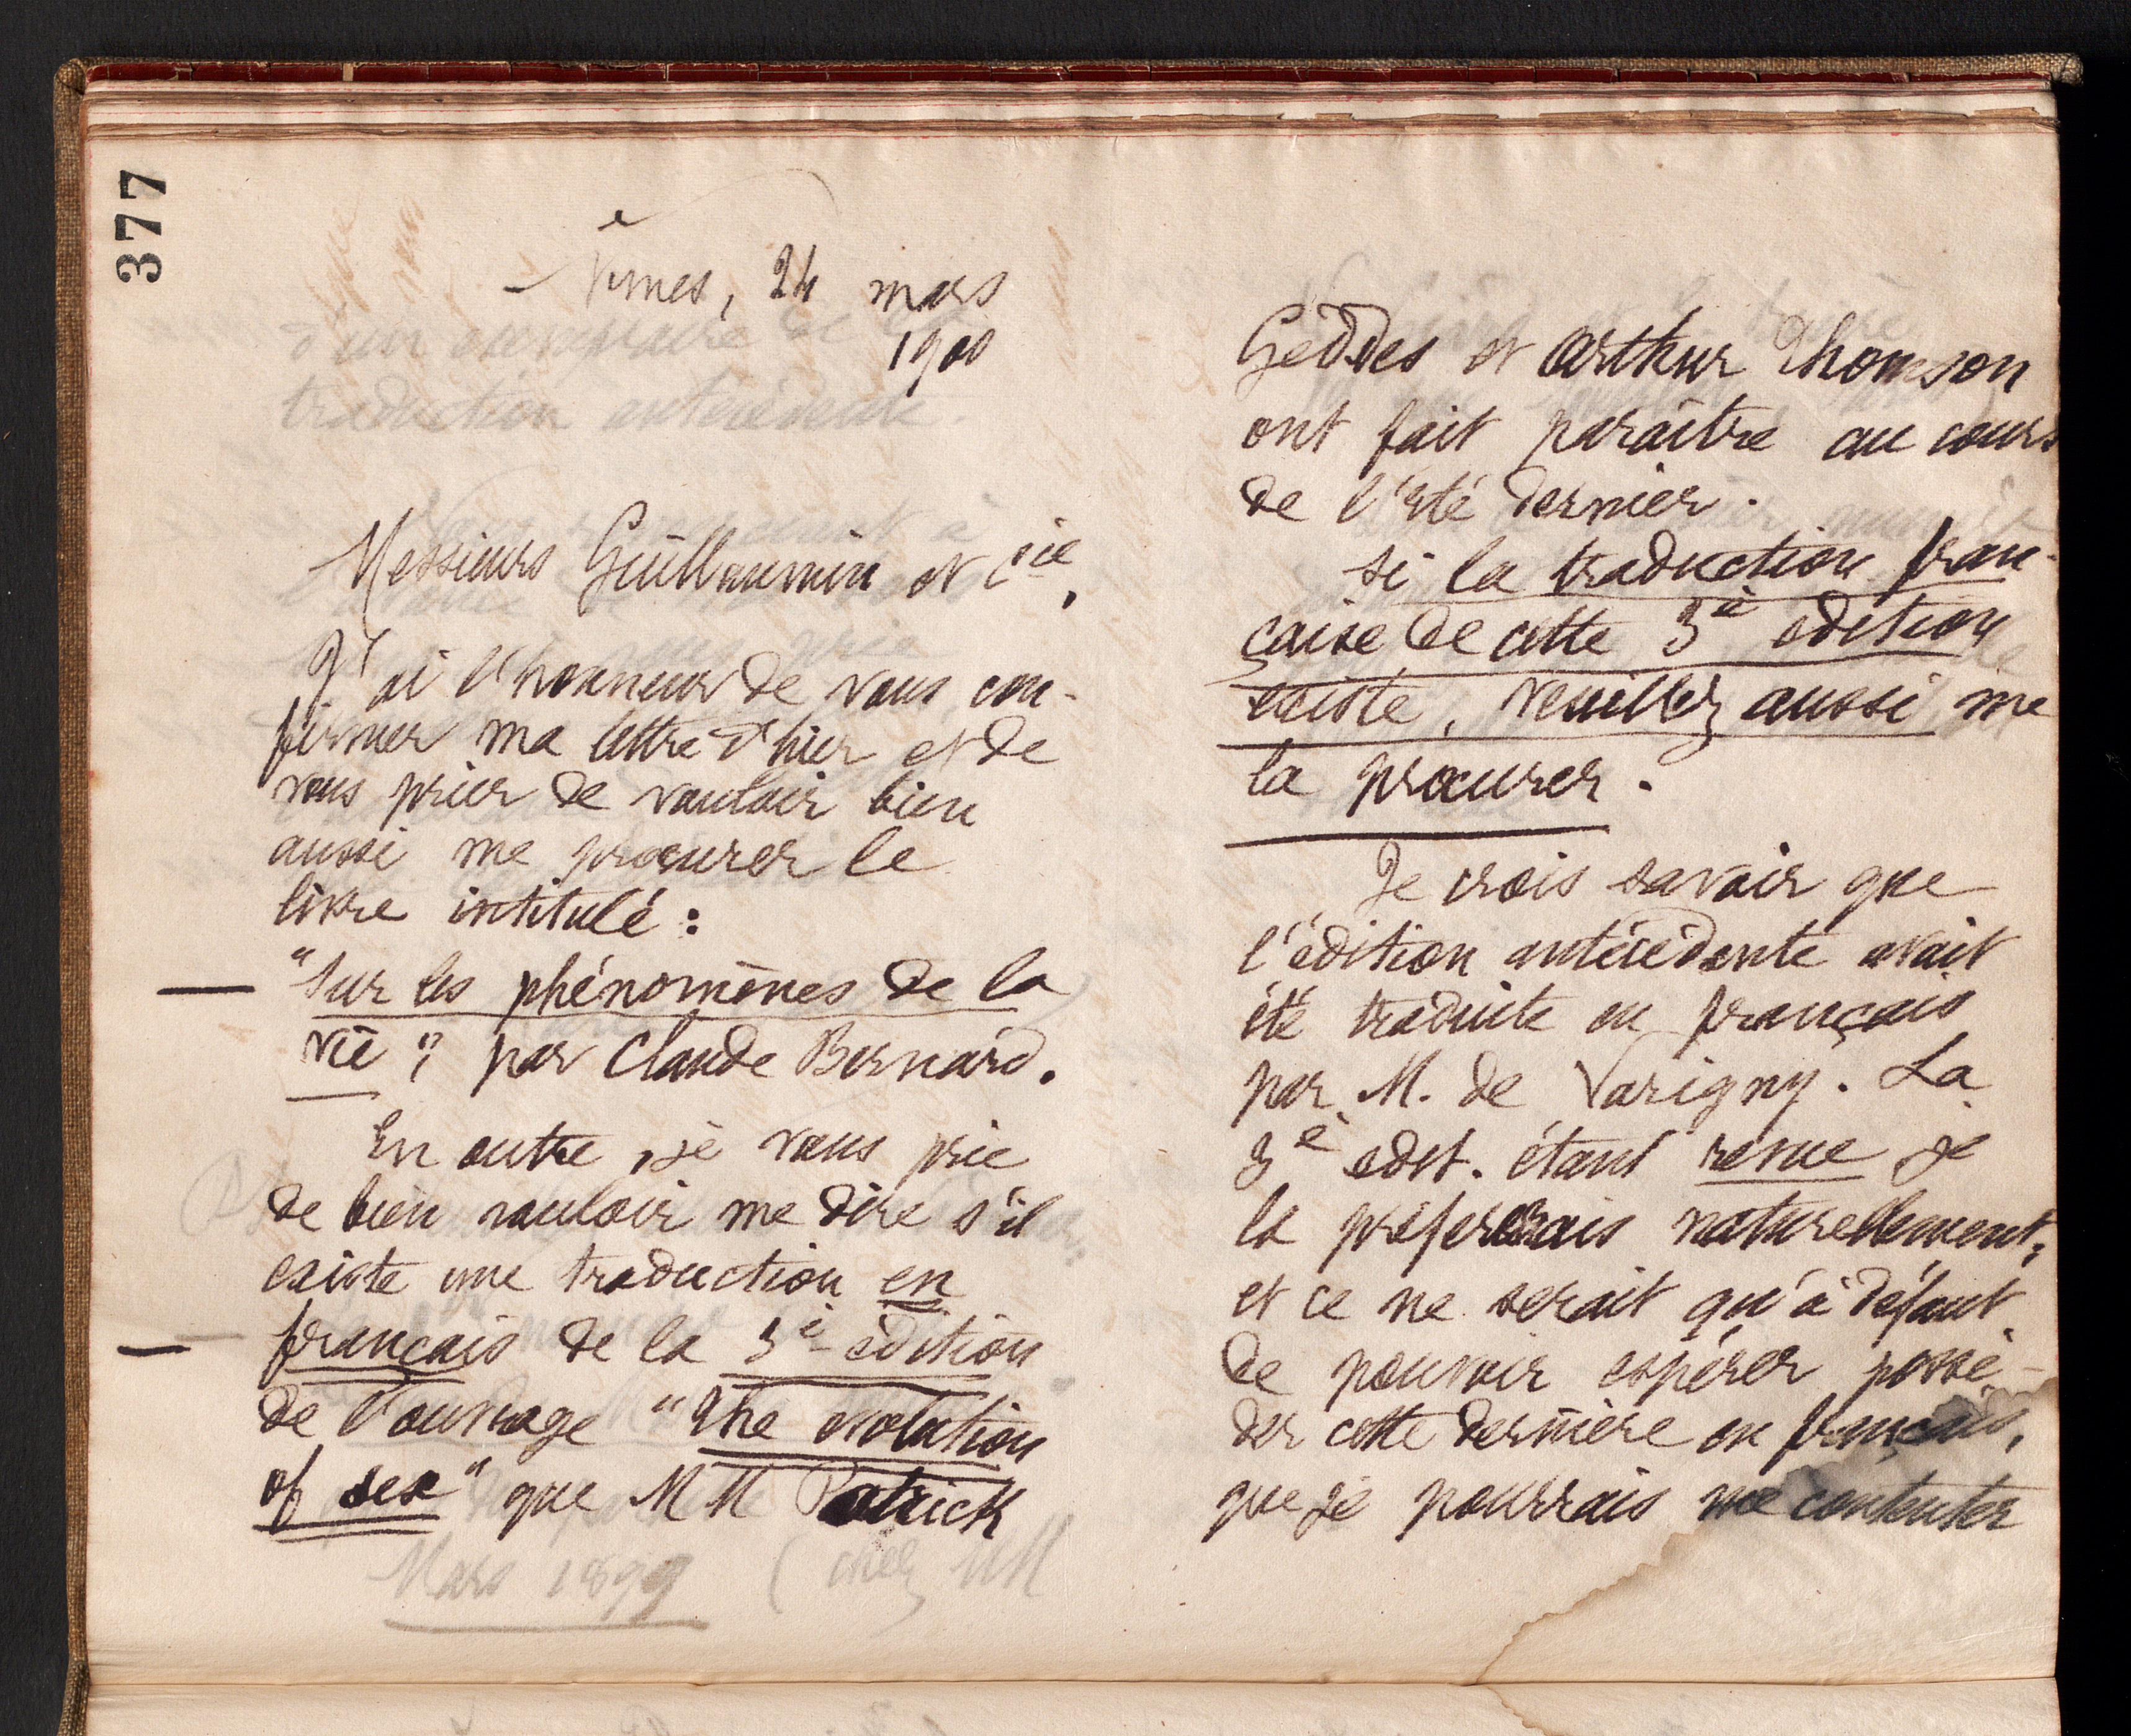 377
Nîmes, 24 mars
1900
Messieurs Guillaumin et Cie,
J'ai l'honneur de vous con-
firmer ma lettre d'hier et de
vous prier de vouloir bien
aussi me procurer le
livre intitulé :
"Sur les phénomènes de la
vie", par Claude Bernard.
En outre, je vous prie
de bien vouloir me dire s'il
existe une traduction en
français de la 3e édition
de l'ouvrage "The evolution
of sex" que MM Patrick
Geddes et Arthur Thomson
ont fait paraître au cours
de l'été dernier.
Si la traduction fran-
çaise de cette 3e édition
existe, veuillez aussi me
la procurer.
Je crois savoir que
l'édition antécédente avait
été traduite en français
par M. de Varigny. La
3e edit. étant revue je
la préfererais naturellement;
et ce ne serait qu'à défaut
de pouvoir espérer possé-
der cette dernière en français,
que je pourrais me contenter
d'un exemplaire de
traduction antécédente.
Mars 1899 (chez MM